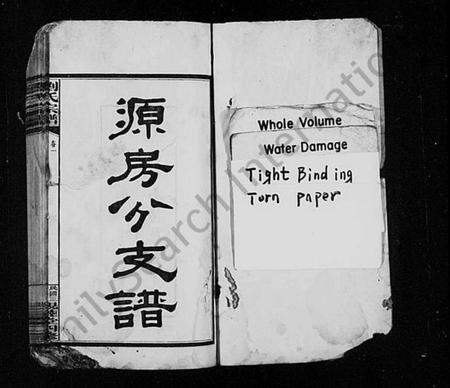 源房分支譜
卷一
Whole Volume
Water Damage
Tight Binding
Torn Paper
FamilySearch International